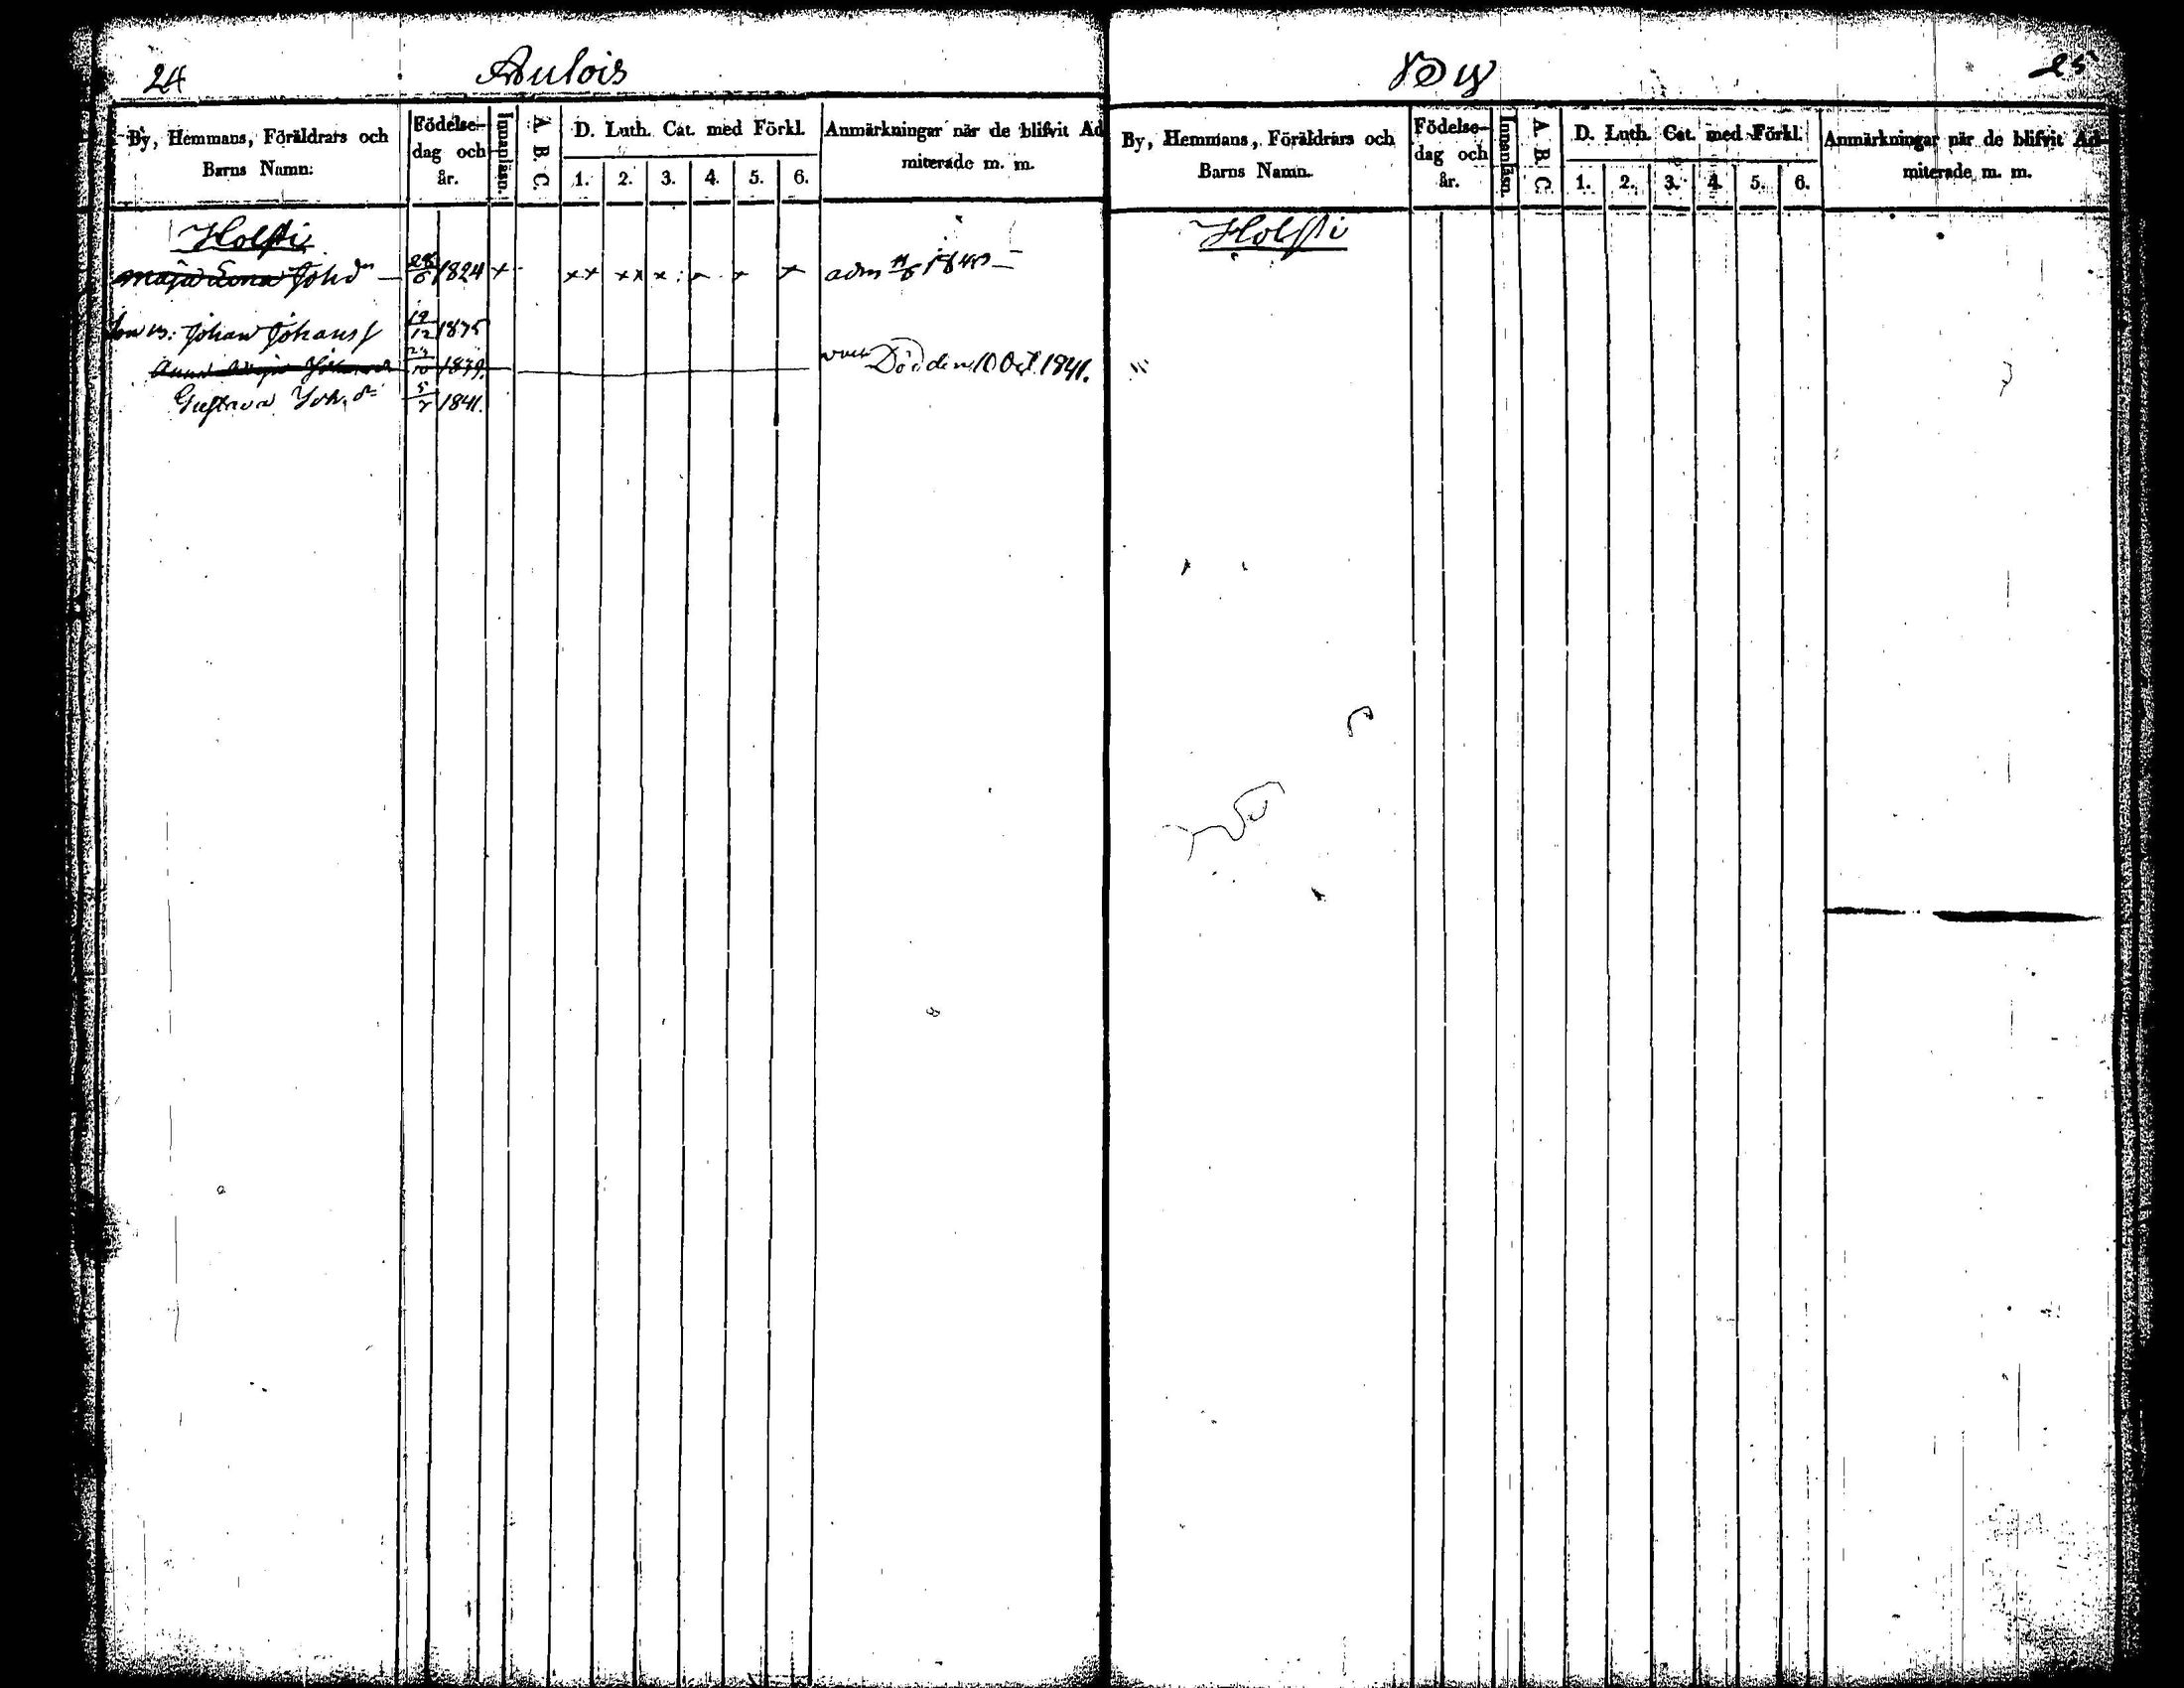 24 Aulois
By, Hemmans, Föräldrars och Barns Namn.
Födelse-dag och år.
Innanläsn.
A B C
D. Luth. Cat. med Förkl.
1. 2. 3. 4. 5. 6.
Anmärkningar när de blifvit Admiterade m. m.
Holsti
Maja Lena Joh dr 1824 + x x x x x x adm
Johan Johans 19/12 1835
Anna 1839. Död den 10 Oct 1841.
Gustava Joh. dr 1841.
By 25
By, Hemmans, Föräldrars och Barns Namn.
Födelse-dag och år.
Innanläsn.
A B C
D. Luth. Cat. med Förkl.
1. 2. 3. 4. 5. 6.
Anmärkningar när de blifvit Admiterade m. m.
Holsti